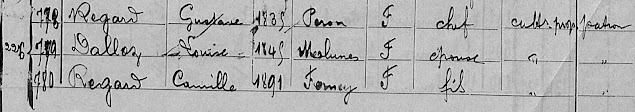 778 Regard Gustave 1835 Peron F chef cultr. prop. patron
226 779 Dalloz Louise 1845 Meslunes F épouse " "
780 Regard Camille 1891 Ferney F fils " "